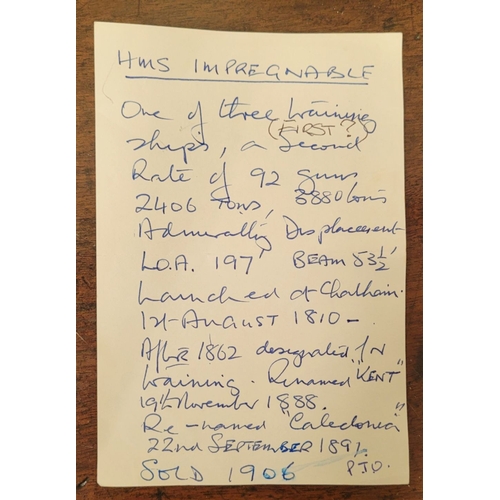 HMS IMPREGNABLE
One of three training
(FIRST?)
ships, a Second
Rate of 92 guns
2406 TONS, 3880 tons
Admiralty Displacement
L.O.A. 197' BEAM 53½'
Launched at Chatham.
1st August 1810 –
After 1862 designated for
training. Renamed "KENT"
19th November 1888.
Re-named "Caledonia"
22nd SEPTEMBER 1891.
SOLD 1906 P.T.O.